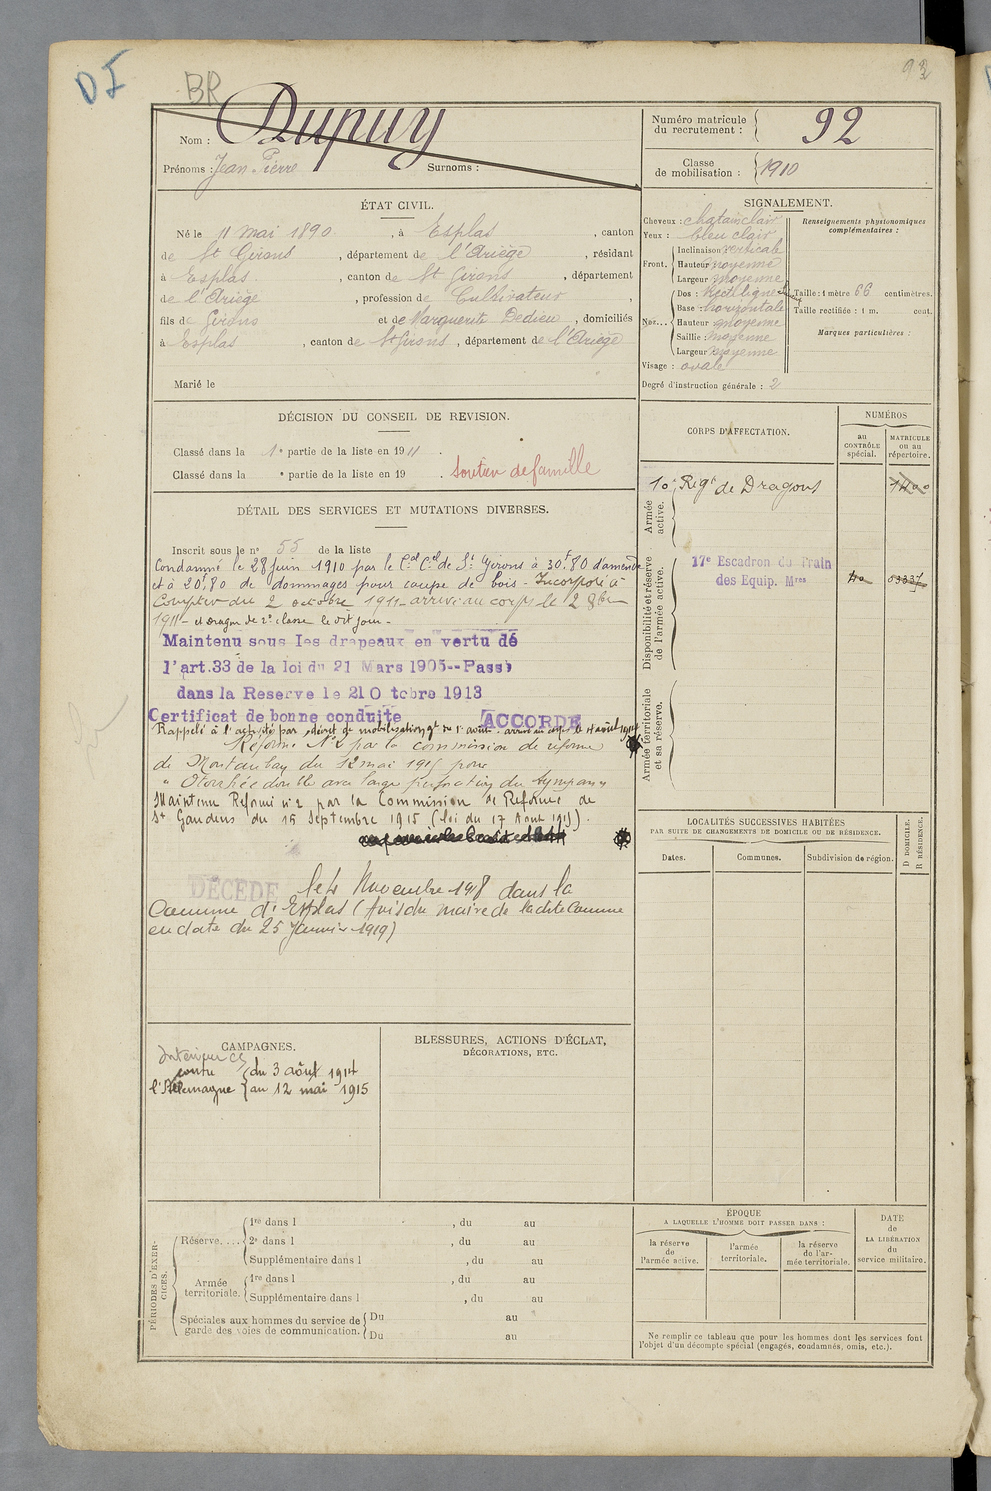 DI
BR
93
Nom : Dupuy
Numéro matricule du recrutement : 92
Prénoms : Jean-Pierre Surnoms :
Classe de mobilisation : 1910
ÉTAT CIVIL.
Né le 11 mai 1890, à Esplas, canton
de St Girons, département de l'Ariège, résidant
à Esplas, canton de St Girons, département
de l'Ariège, profession de Cultivateur,
fils de Girons et de Marguerite Dedieu, domiciliés
à Esplas, canton de St Girons, département de l'Ariège
Marié le
SIGNALEMENT.
Cheveux : chatain clair
Yeux : bleu clair
Front. Inclinaison verticale
Hauteur moyenne
Largeur moyenne
Nez... Dos : Rectiligne
Base : horizontale
Hauteur moyenne
Saillie : moyenne
Largeur moyenne
Visage : ovale
Renseignements physionomiques complémentaires :
Taille : 1 mètre 66 centimètres.
Taille rectifiée : 1 m. cent.
Marques particulières :
Degré d'instruction générale : 2
DÉCISION DU CONSEIL DE REVISION.
Classé dans la 1e partie de la liste en 1911.
Classé dans la e partie de la liste en 19 . Soutien de famille
DÉTAIL DES SERVICES ET MUTATIONS DIVERSES.
Inscrit sous le n° 55 de la liste
Condamné le 28 juin 1910 par le Cal Cel de St Girons à 30f.80 d'amende
et à 20f,80 de dommages pour coupe de bois - Incorporé à
Compter du 2 octobre 1911 - arrivé au corps le 2 8bre
1911 - et Dragon de 2e classe le dit jour -
Maintenu sous les drapeaux en vertu de
l'art.33 de la loi du 21 Mars 1905--Passé
dans la Reserve le 21 O tobre 1913
Certificat de bonne conduite ACCORDÉ
Rappelé à l'activité par décret de mobilisation gle du 1er août. arrivé au corps le 4 août 1914
Réformé N°2 par la commission de réforme
de Montauban du 12 mai 1915 pour
" Otorrhée double avec large perforation du tympan "
Maintenu Réformé n°2 par la Commission de Réforme de
St Gaudens du 15 Septembre 1915 (loi du 17 Août 1915).
DÉCÉDÉ le 4 Novembre 1918 dans la
Commune d'Esplas (Avis du maire de la dite Commune
en date du 25 Janvier 1919)
CORPS D'AFFECTATION.
NUMÉROS
au CONTRÔLE spécial.
MATRICULE ou au répertoire.
Armée active.
10e Régt de Dragons 1400
Disponibilité et réserve de l'armée active.
17e Escadron du Train
des Equip. Mres
Armée territoriale et sa réserve.
LOCALITÉS SUCCESSIVES HABITÉES
PAR SUITE DE CHANGEMENTS DE DOMICILE OU DE RÉSIDENCE.
Dates. Communes. Subdivision de région.
D DOMICILE.
R RÉSIDENCE.
CAMPAGNES.
Intérieur CS
contre du 3 août 1914
l'Allemagne au 12 mai 1915
BLESSURES, ACTIONS D'ÉCLAT,
DÉCORATIONS, ETC.
PÉRIODES D'EXERCICES.
Réserve.... 1re dans l , du au
2e dans l , du au
Supplémentaire dans l , du au
Armée territoriale. 1re dans l , du au
Supplémentaire dans l , du au
Spéciales aux hommes du service de garde des voies de communication. Du au
Du au
ÉPOQUE
A LAQUELLE L'HOMME DOIT PASSER DANS :
la réserve de l'armée active.
l'armée territoriale.
la réserve de l'armée territoriale.
DATE de LA LIBÉRATION du service militaire.
Ne remplir ce tableau que pour les hommes dont les services font
l'objet d'un décompte spécial (engagés, condamnés, omis, etc.).